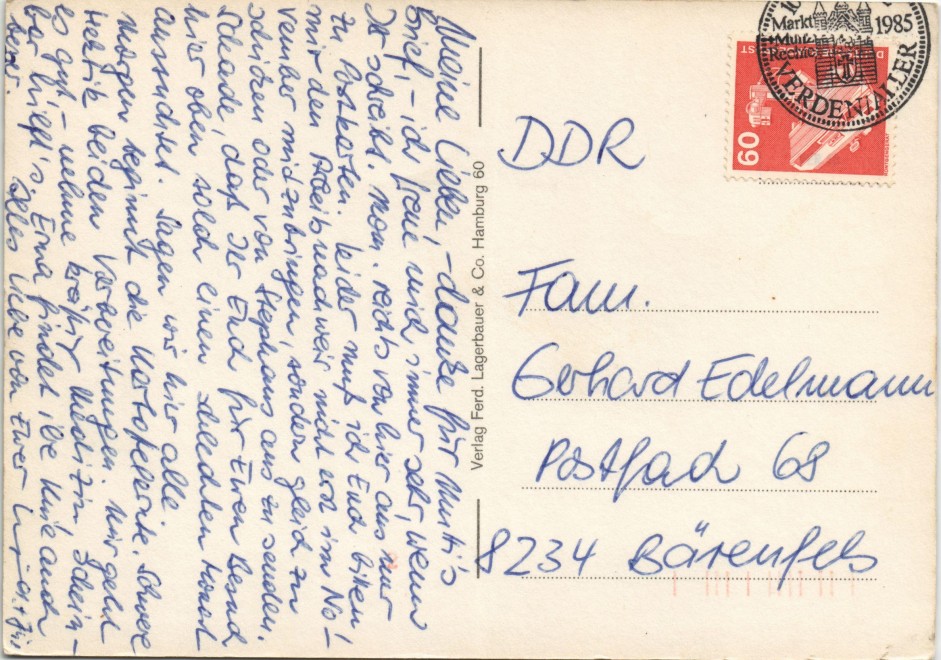 Meine Lieben, danke für Mutti's
Brief, - ich freue mich immer sehr, wenn
Ihr schreibt. Man reicht von hier aus nur
zu Postkarten. Leider muß ich Euch bitten
mir den Preisnachweis nicht erst im No-
vember mitzubringen, sondern gleich zu
schicken oder von Stephans aus zu senden.
Schade, daß Ihr Euch für Euren Besuch
hier oben solch einen schlechten Monat
aussuchtet. Sagen wir hier alle.
Morgen beginnt die Kartoffelernte. Schwere
Hektik bei den Vorbereitungen. Mir geht
es gut - nehme kräftig Medizin, Schein-
bar hilft's. Erna findet ihre Knie auch
besser. Alles Liebe von Eurer
Verlag Ferd. Lagerbauer & Co. Hamburg 60
Markt
1985
VERDEN (ALLER
60
DDR
Fam.
Gerhard Edelmann
Postfach 68
8234 Bärenfels